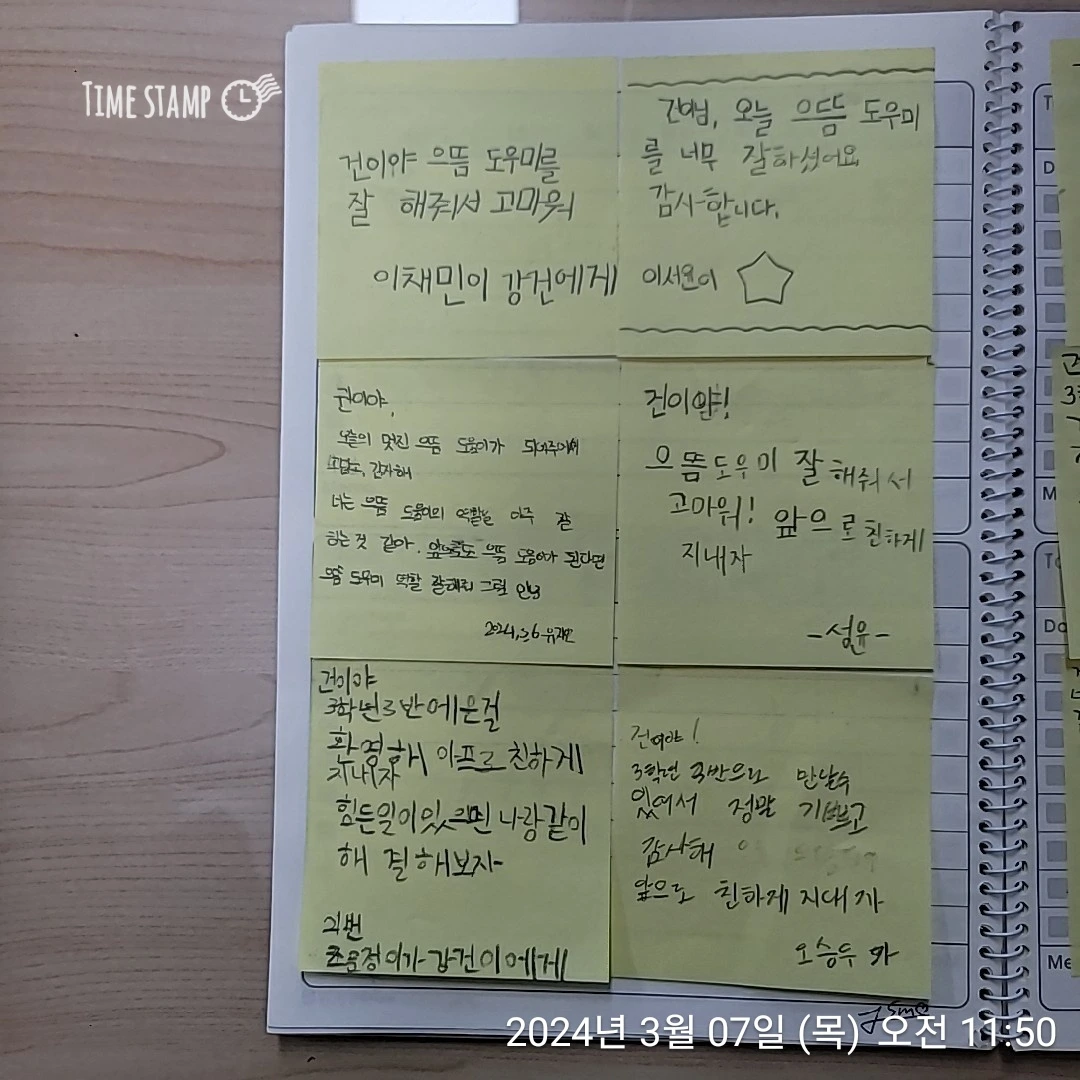 TIME STAMP
건이야 으뜸 도우미를
잘 해줘서 고마워
이채민이 강건에게
건이님, 오늘 으뜸 도우미
를 너무 잘하셨어요
감사합니다.
이서윤이
건이야,
오늘의 멋진 으뜸 도움이가 되어주어서
감사해
너는 으뜸 도움이의 역할을 아주 잘
하는 것 같아. 앞으로도 으뜸 도움이가 된다면
으뜸 도우미 역할 잘해줘 그럼 안녕
건이야!
으뜸도우미 잘 해줘서
고마워! 앞으로 친하게
지내자
-섬유-
건이야
3학년3반에온걸
환영해 아프로 친하게
지내자
힘든일이있으면 나랑같이
해결해보자
건이야!
3학년 3반으로 만날수
있여서 정말 기쁘고
감사해
앞으로 친하게 지내자
오승우 가
2024년 3월 07일 (목) 오전 11:50